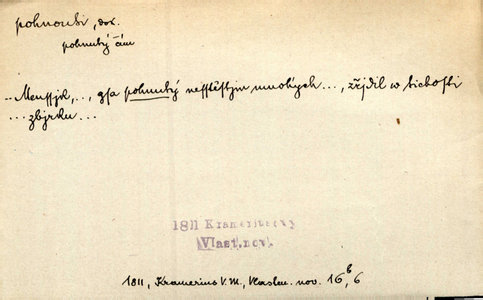 pohnouti, dok.
pohnutý čím
..Menssjk, .., gsa pohnutý nesstěstjm mnohých ..., zřjdil w tichosti
... zbjrku ...
1811 Krameriusovy
Vlast. nov.
1811, Kramerius V. M., Vlasten. nov. 16, 6